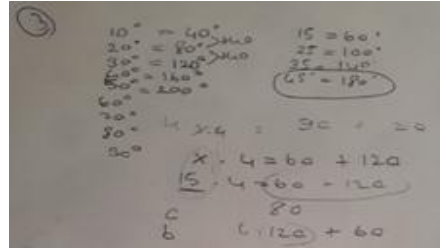 3
10° = 40°
20° = 80° >+40
30° = 120° >+40
= 160°
50° = 200°
60°
70°
80°
90°
15 = 60°
25 = 100°
35 = 140
45° = 180°
x · 4 = 60 + 120
15 · 4 = 60 + 120
c 80
b 120 + 60